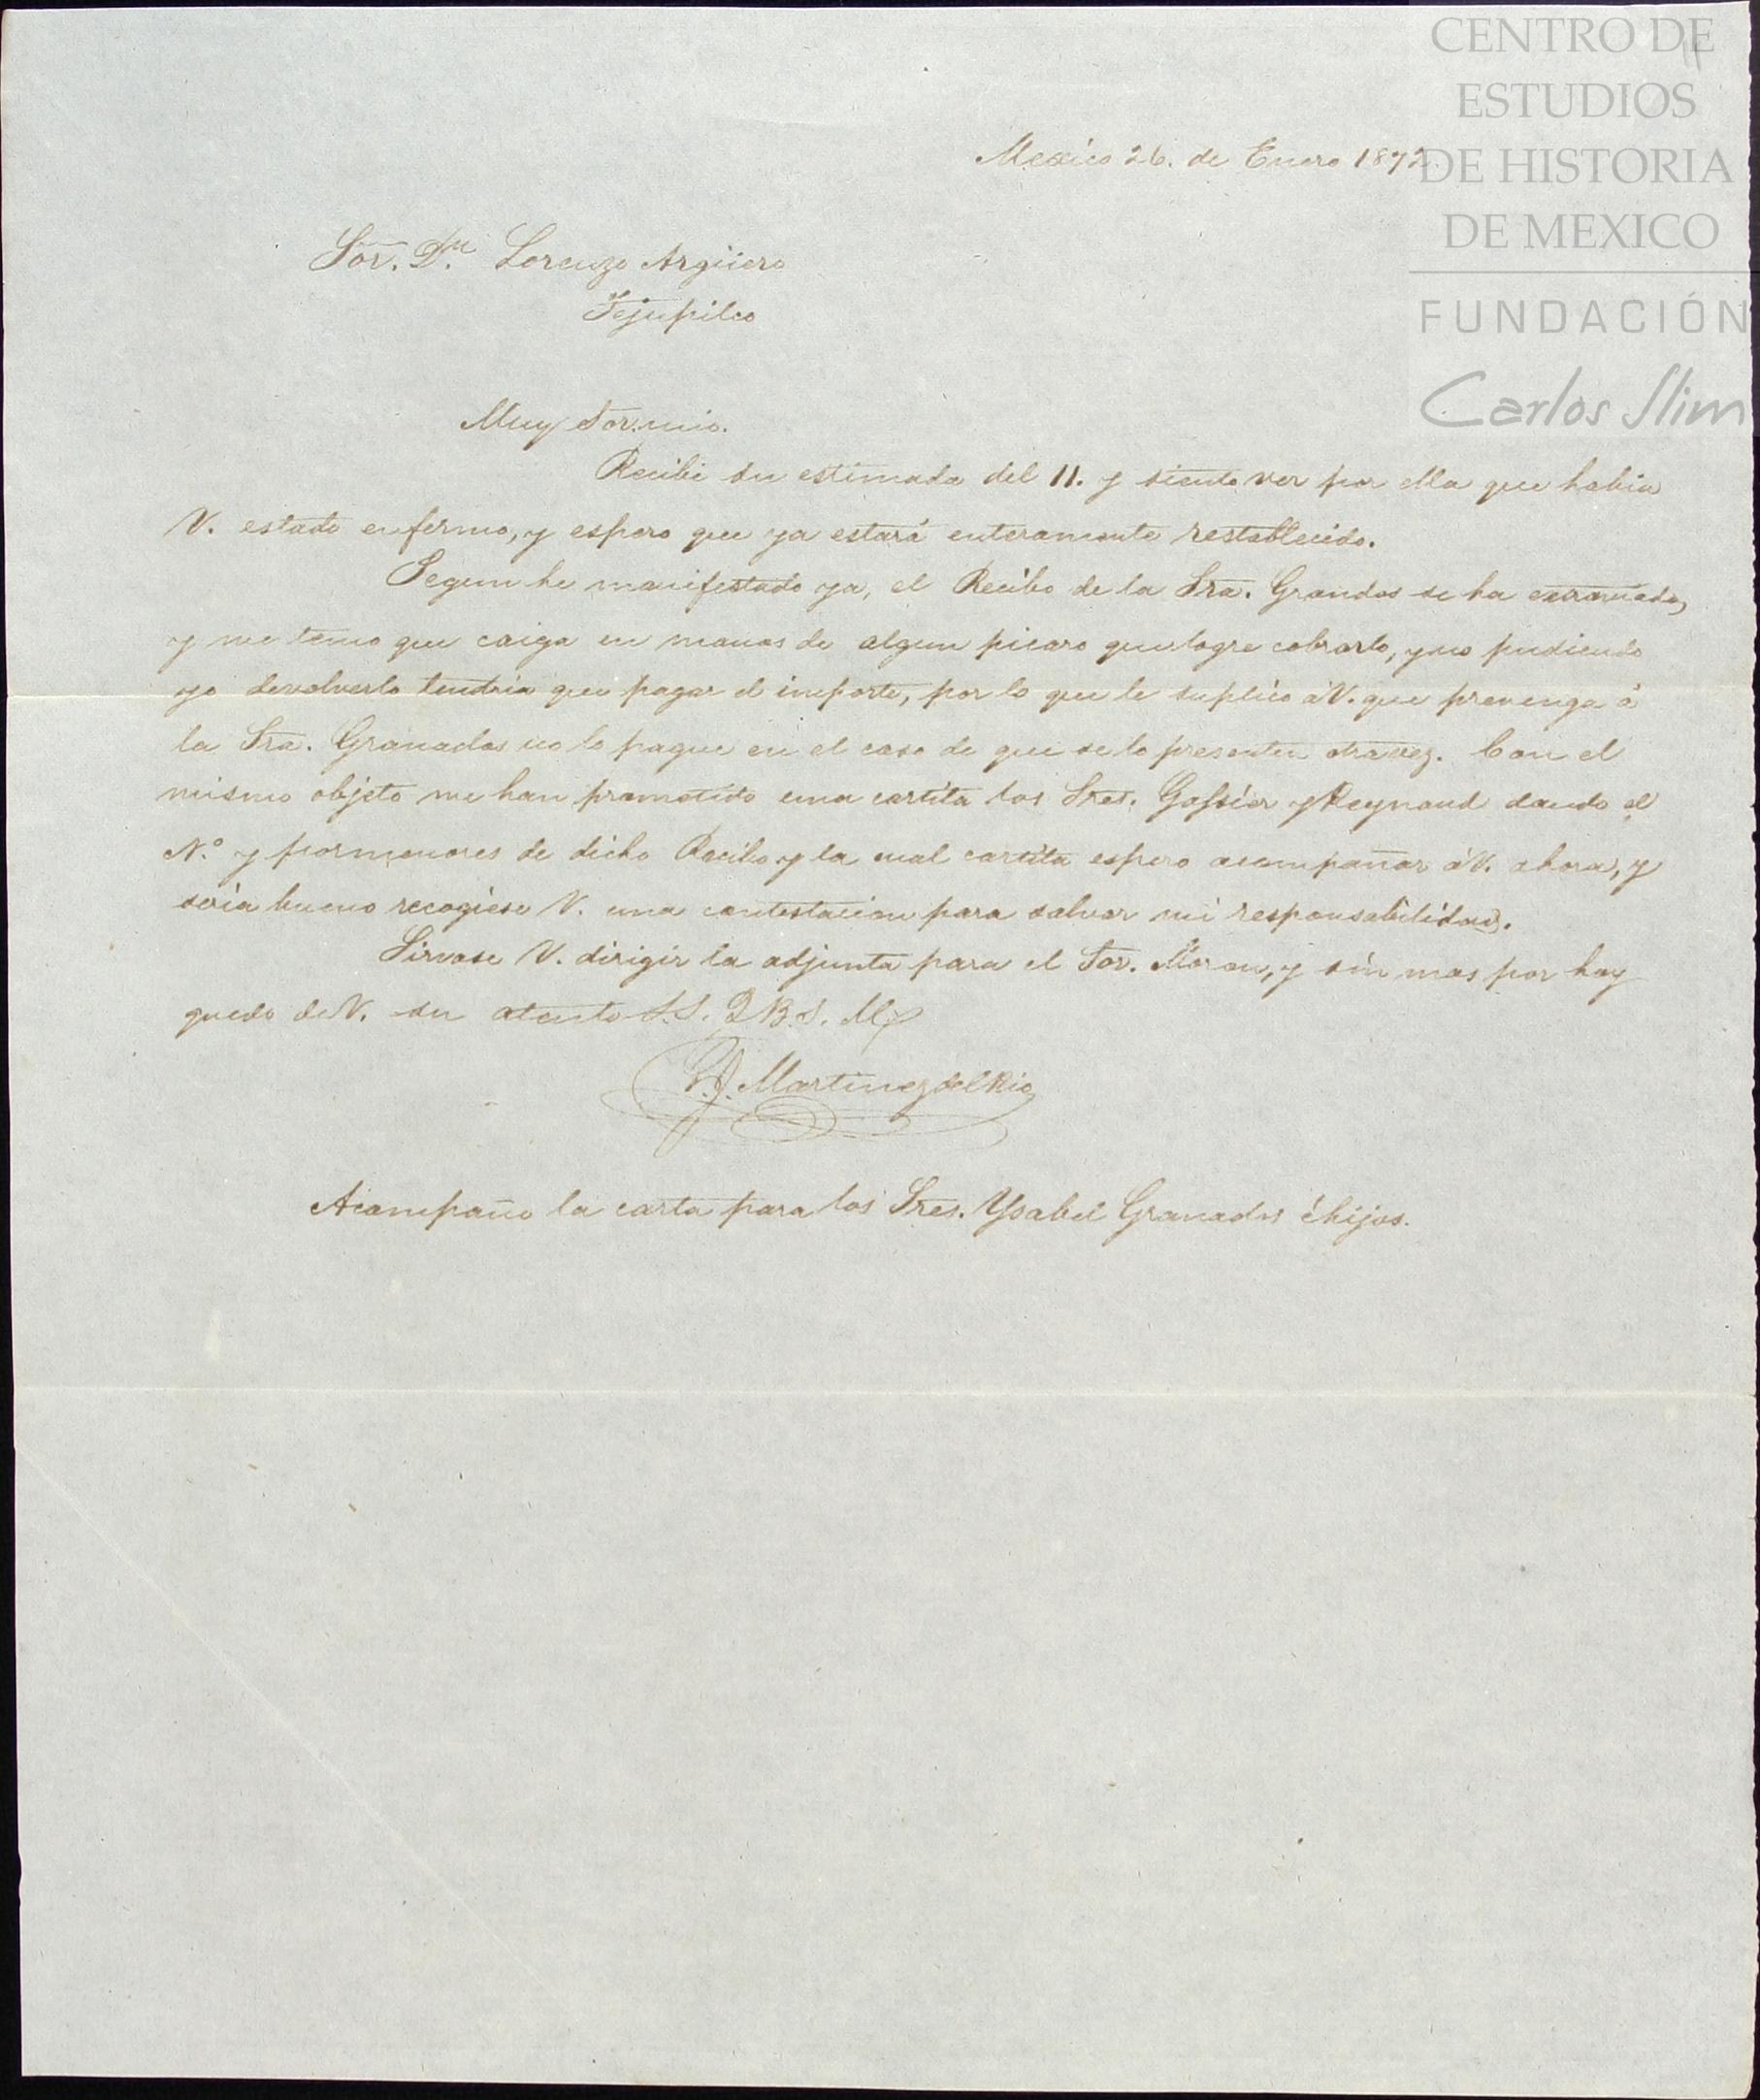 CENTRO DE
ESTUDIOS
DE HISTORIA
DE MEXICO
FUNDACIÓN
Carlos Slim
Mexico 26. de Enero 1872.
Sor. Dn. Lorenzo Argüero
Tejupilco
Muy Sor. mio.
Recibi su estimada del 11. y siento ver por ella que habia
V. estado enfermo, y espero que ya estará enteramente restablecido.
Segun he manifestado ya, el Recibo de la Sra. Grandos se ha
y me temo que caiga en manos de algun picaro que logre cobrarlo, y no pudiendo
yo devolverlo tendria que pagar el importe, por lo que le suplico á V. que prevenga á
la Sra. Granados no lo pague en el caso de que se lo presenten otra vez. Con el
mismo objeto me han prometido una cartita los Sres. Gassier y Reynaud dando el
N.º y pormenores de dicho Recibo y la cual cartita espero acompañar á V. ahora, y
seria bueno recogiese V. una contestacion para salvar mi responsabilidad.
Sirvase V. dirigir la adjunta para el Sor. Moran, y sin mas por hoy
quedo de V. su atento S.S. Q.B.S.M.
Martinez del Rio
Acompaño la carta para los Sres. Ysabel Granados é hijos.